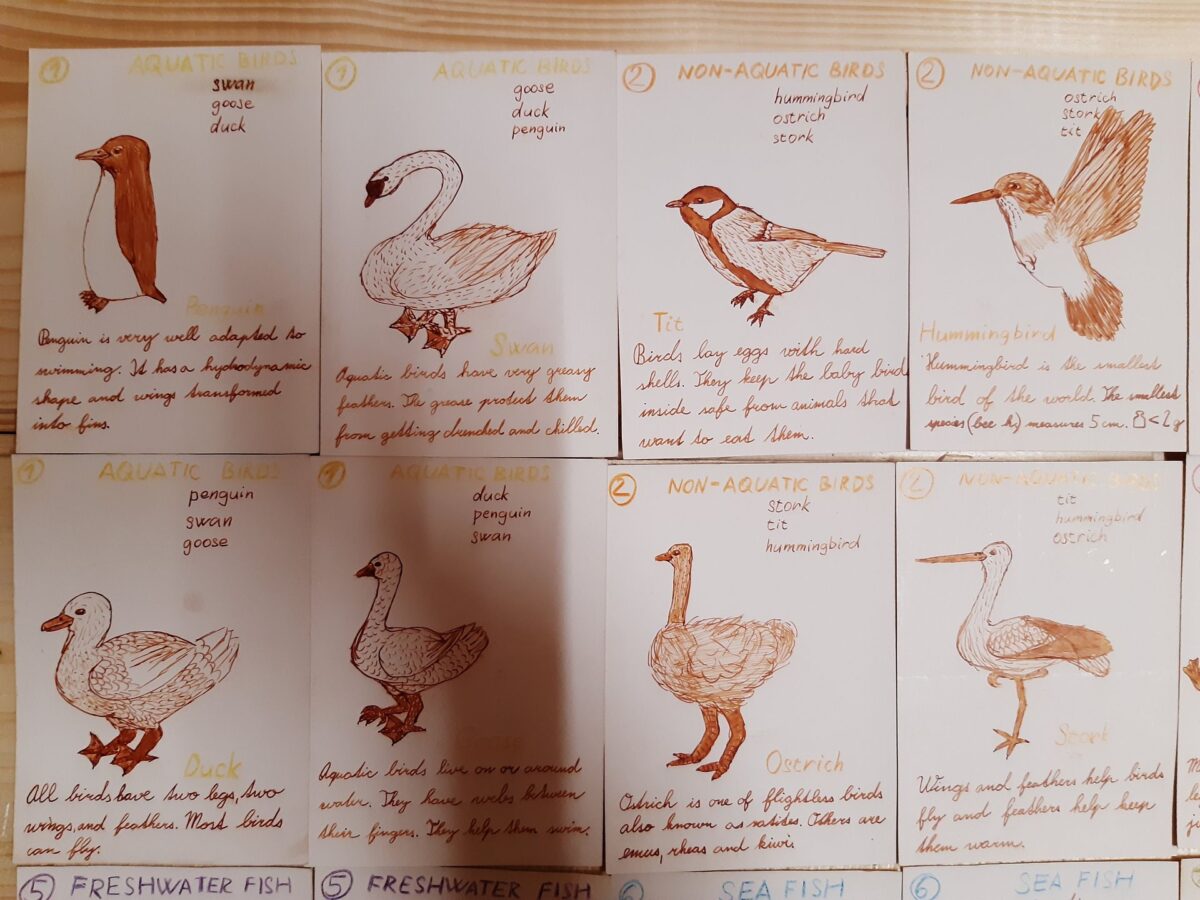 1 AQUATIC BIRDS
swan
goose
duck
Penguin
Penguin is very well adapted to
swimming. It has a hydrodynamic
shape and wings transformed
into fins.
1 AQUATIC BIRDS
goose
duck
penguin
Swan
Aquatic birds have very greasy
feathers. The grease protect them
from getting drenched and chilled.
2 NON-AQUATIC BIRDS
hummingbird
ostrich
stork
Tit
Birds lay eggs with hard
shells. They keep the baby bird
inside safe from animals that
want to eat them.
2 NON-AQUATIC BIRDS
ostrich
stork
tit
Hummingbird
Hummingbird is the smallest
bird of the world. The smallest
species (bee h.) measures 5 cm. <2 g
1 AQUATIC BIRDS
penguin
swan
goose
Duck
All birds have two legs, two
wings, and feathers. Most birds
can fly.
1 AQUATIC BIRDS
duck
penguin
swan
Goose
Aquatic birds live on or around
water. They have webs between
their fingers. They help them swim.
2 NON-AQUATIC BIRDS
stork
tit
hummingbird
Ostrich
Ostrich is one of flightless birds
also known as ratides. Others are
emus, rheas and kiwi.
2 NON-AQUATIC BIRDS
tit
hummingbird
ostrich
Stork
Wings and feathers help birds
fly and feathers help keep
them warm.
5 FRESHWATER FISH
5 FRESHWATER FISH
6 SEA FISH
6 SEA FISH